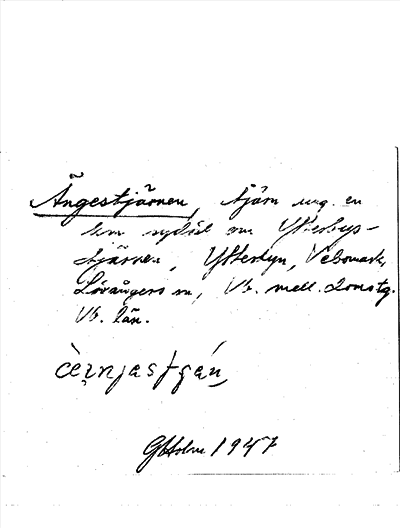 Ängestjärnen, tjärn ung. en
km sydöst om Ytterbys-
tjärnen, Ytterbyn, Vebomark,
Lövångers sn, Vb. mell. domstg.
Vb. län.
GHolm 1947